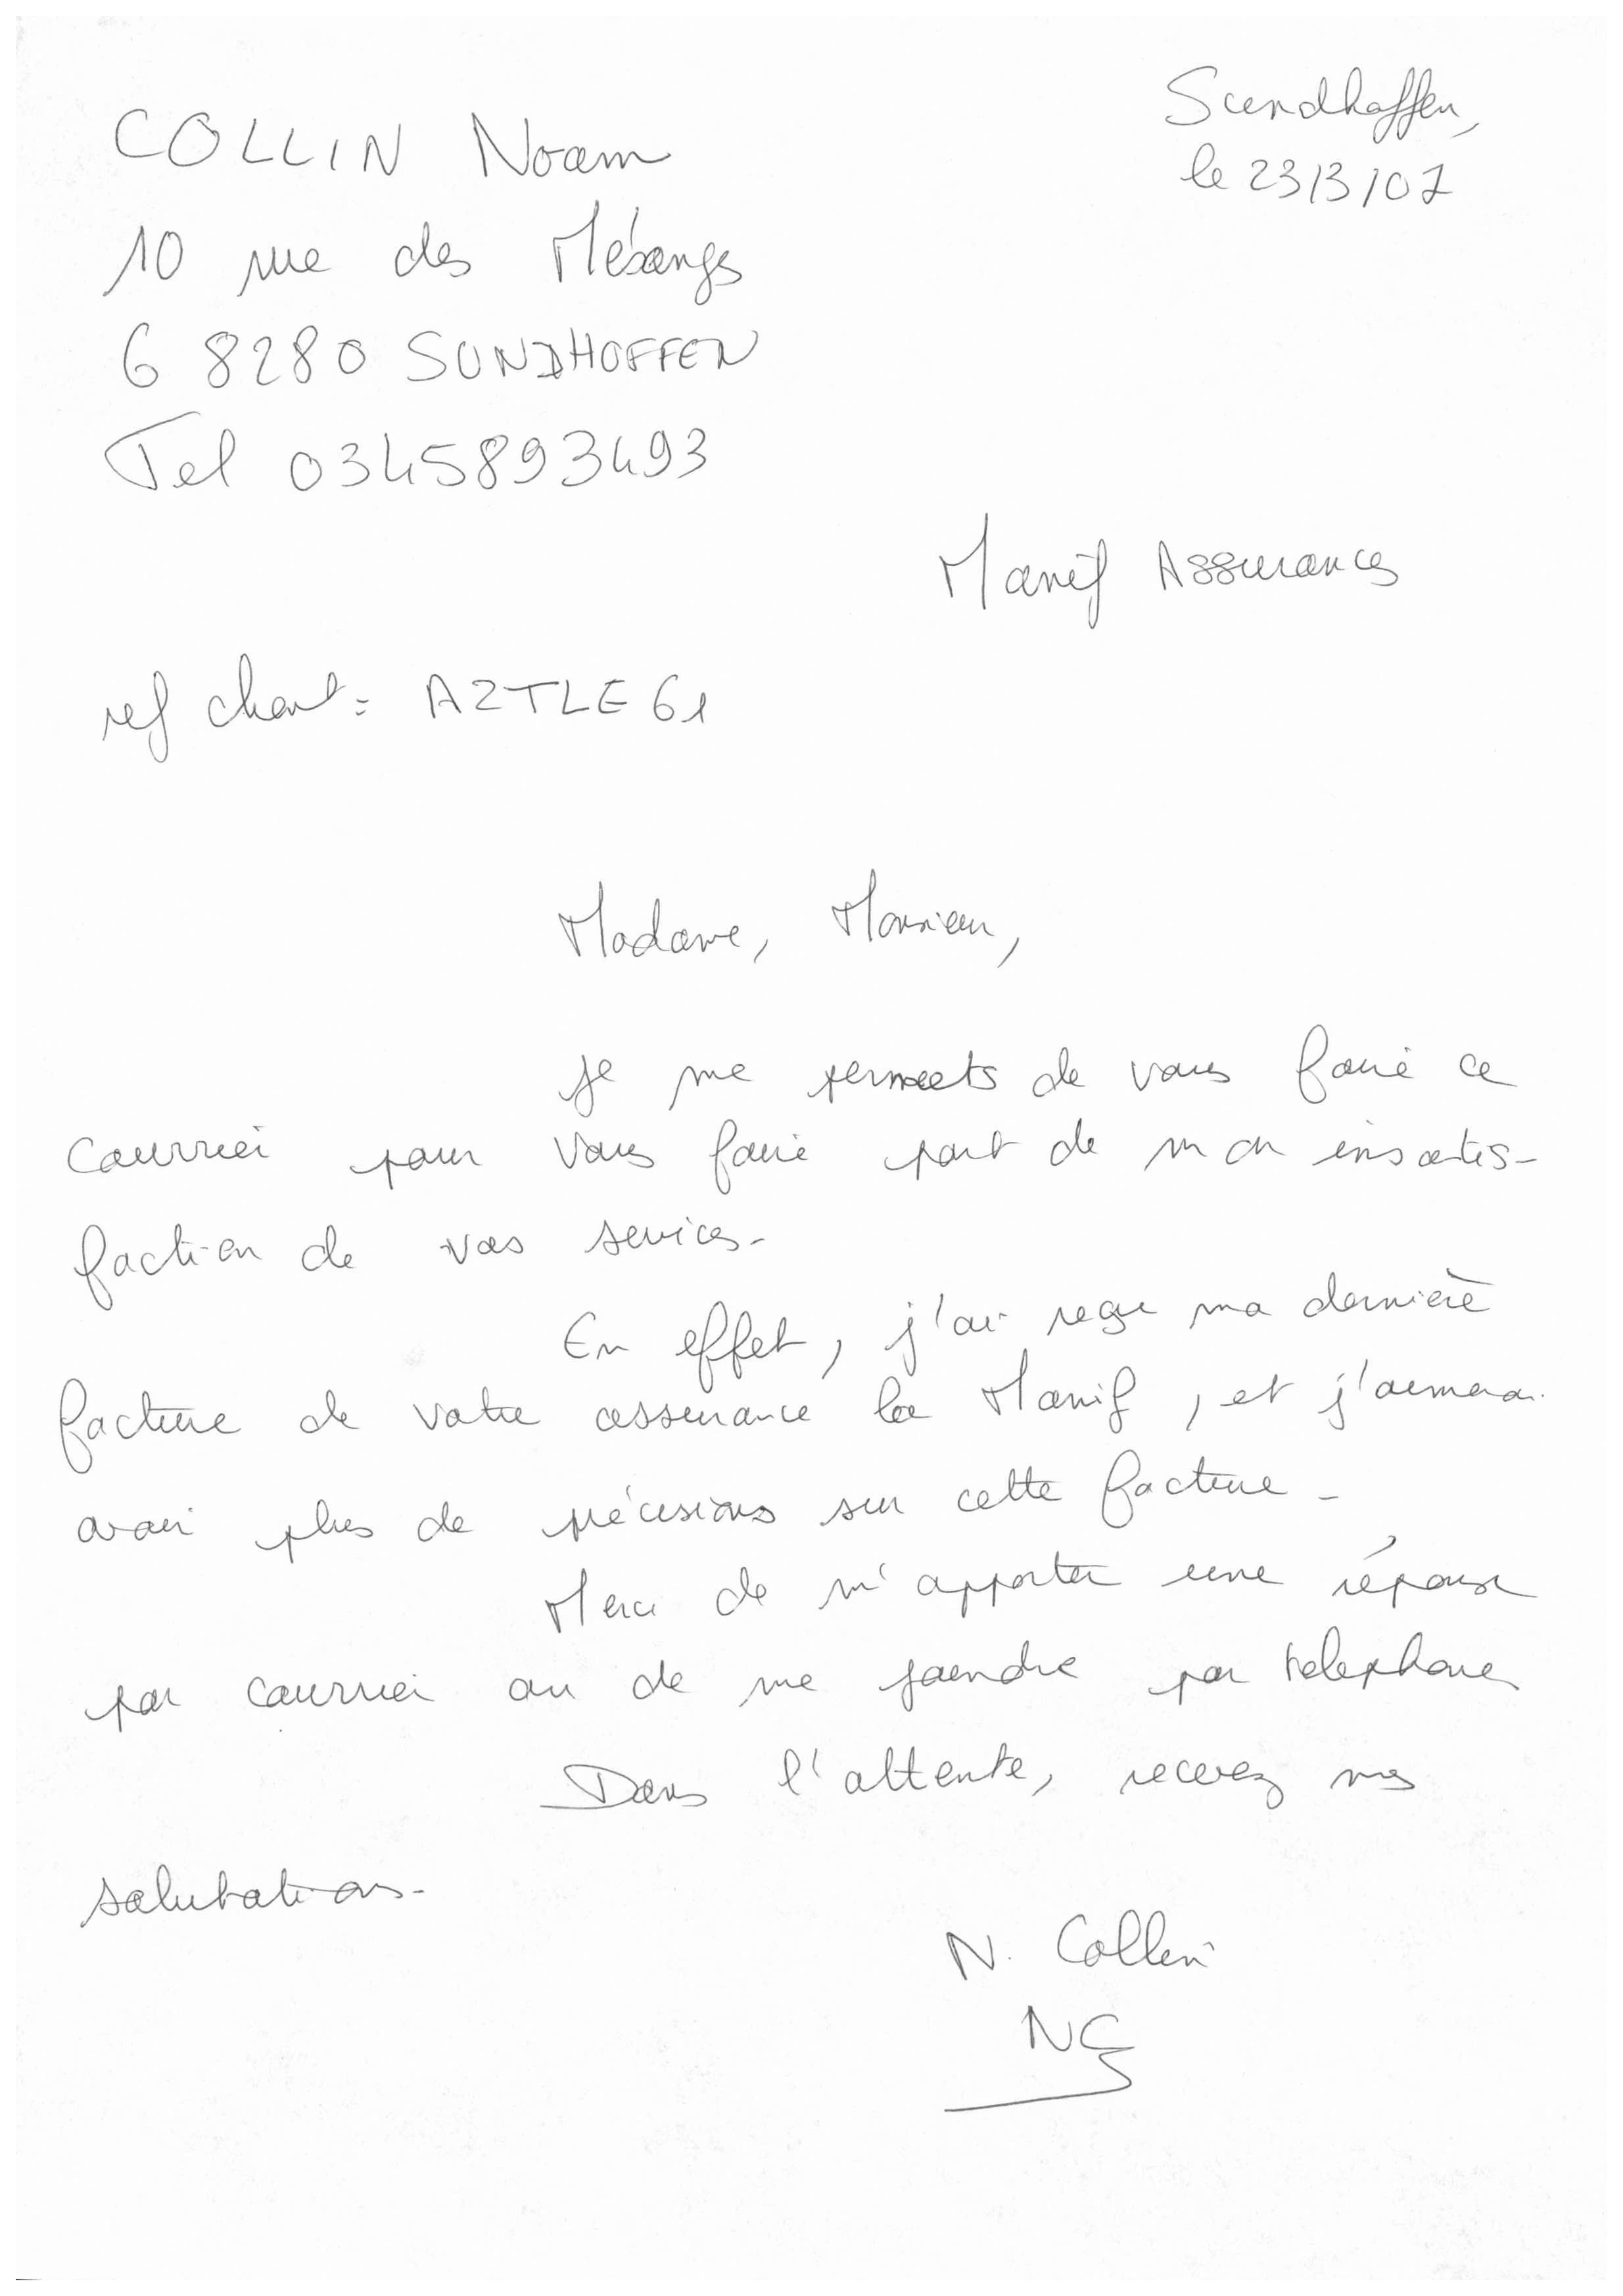 COLLIN Noam
Sundhoffen,
le 23/3/07
10 rue des Mésanges
68280 SUNDHOFFEN
Tel 0345893493
Manif Assurances
ref client : AZTLE61
Madame, Monsieur,
Je me permets de vous faire ce
courrier pour vous faire part de mon insatis-
faction de vos services.
En effet, j'ai reçu ma dernière
facture de votre assurance la Manif, et j'aimerai
avoir plus de précisions sur cette facture.
Merci de m'apporter une réponse
par courrier ou de me joindre par telephone
Dans l'attente, recevez mes
salutations.
N. Collin
NC